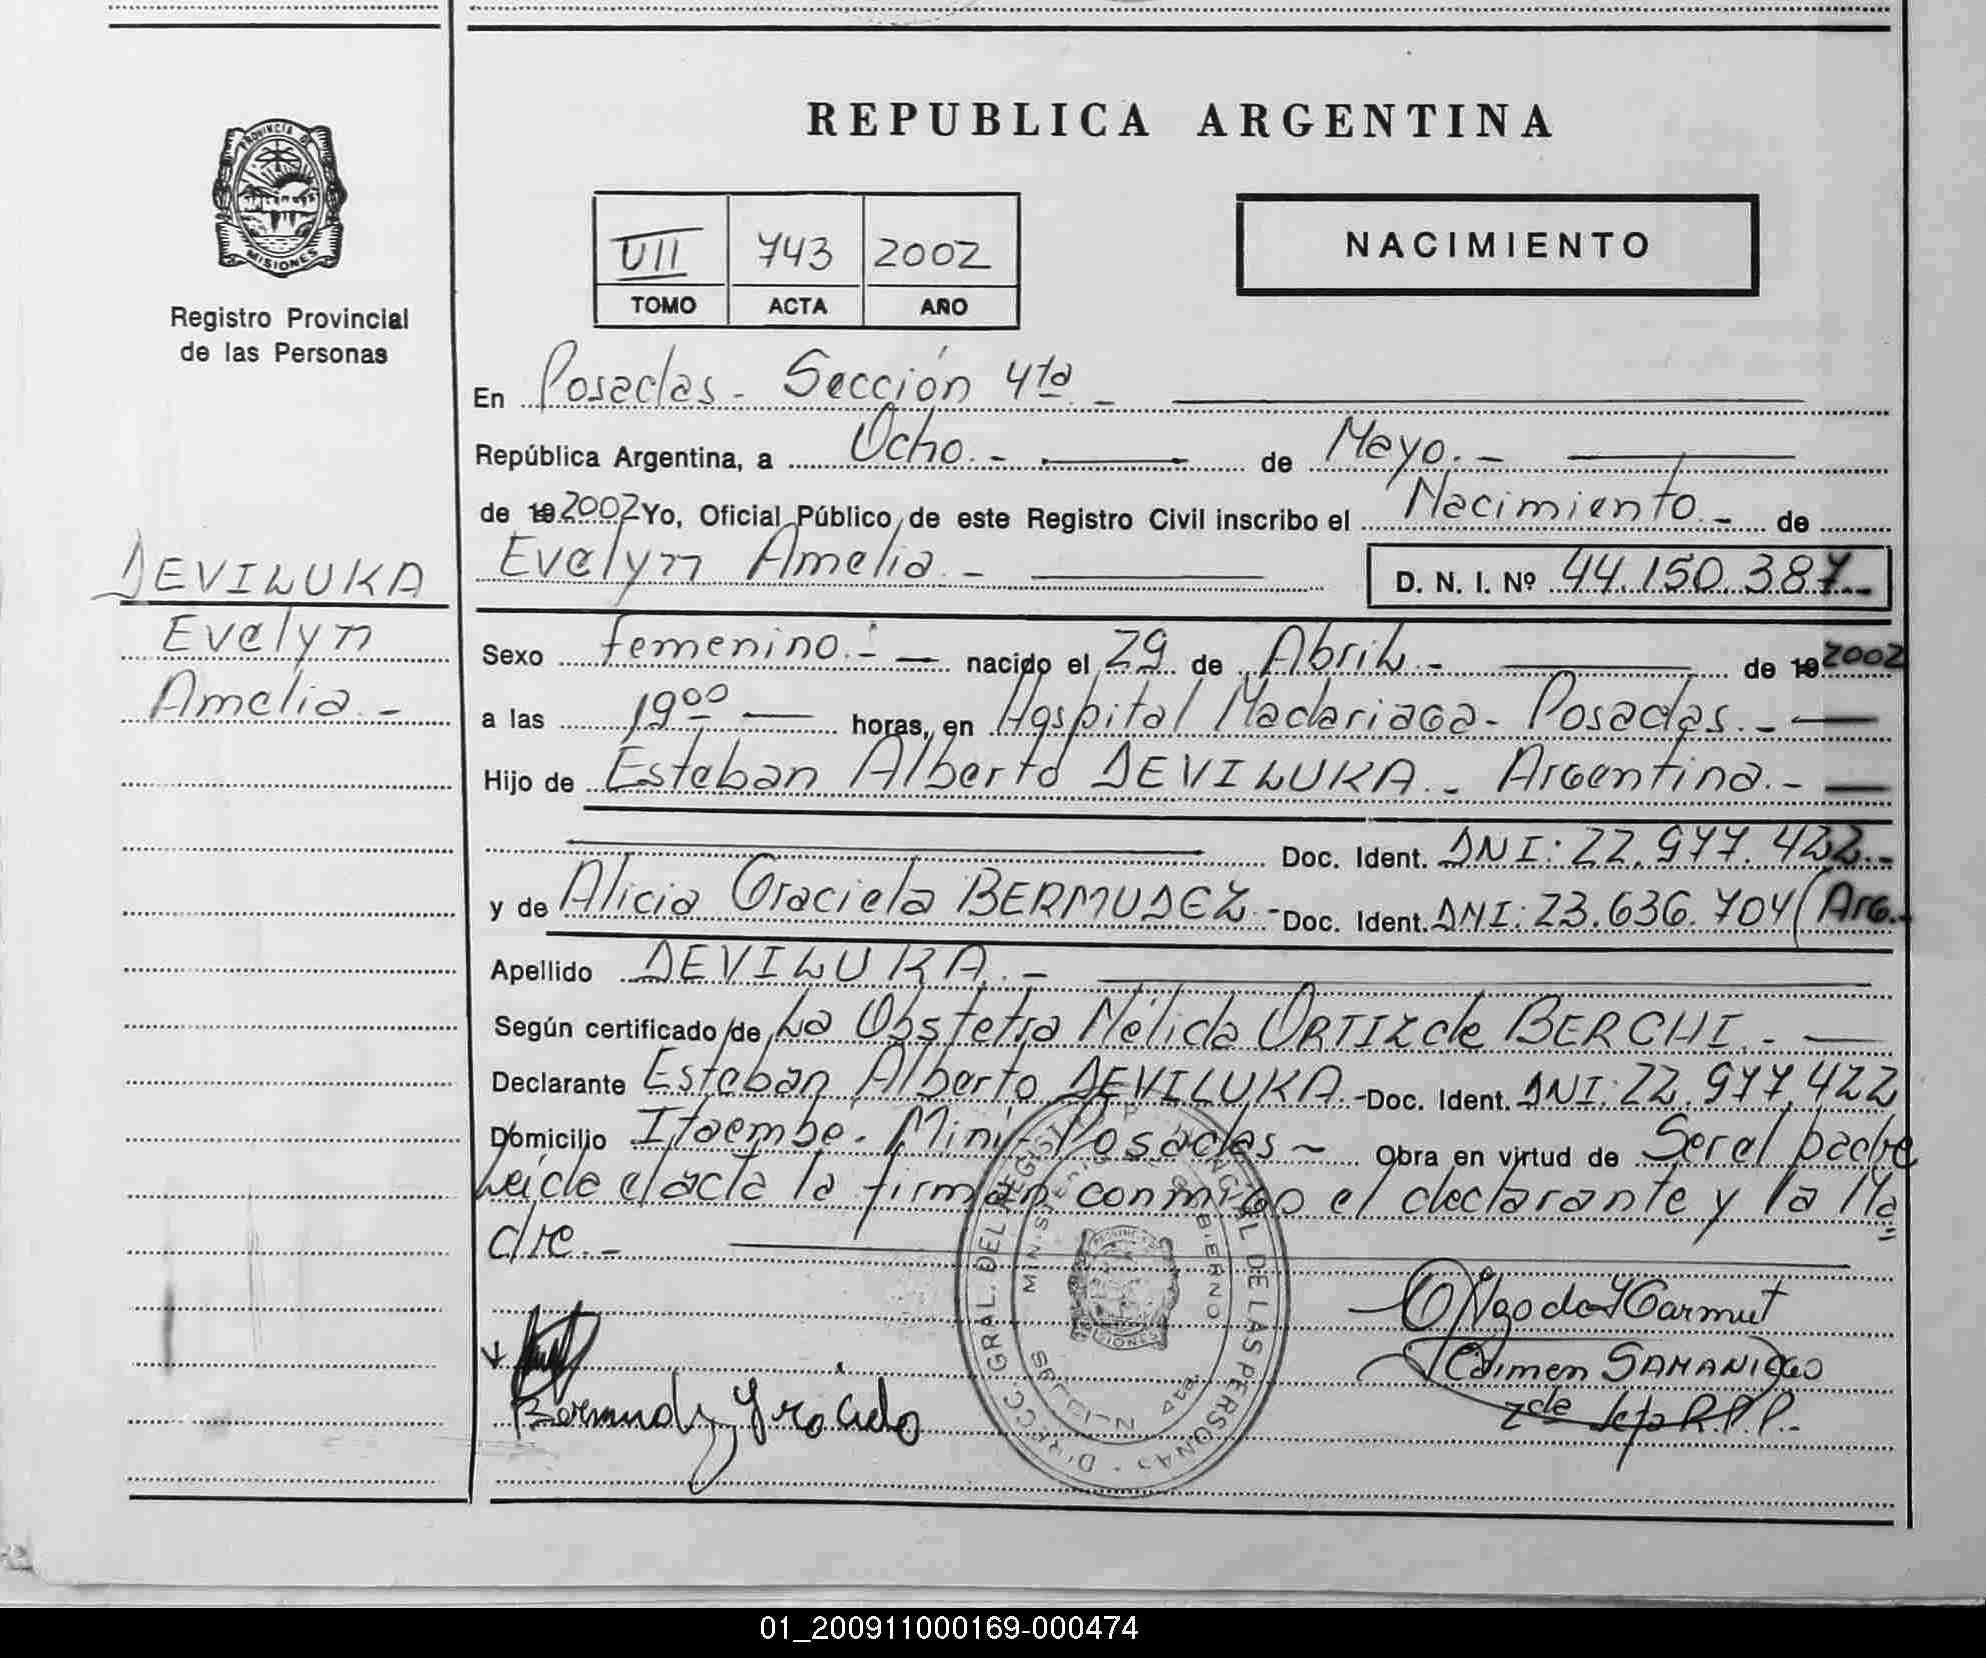 REPUBLICA ARGENTINA
PROVINCIA DE MISIONES
Registro Provincial
de las Personas
VII 743 2002
TOMO ACTA AÑO
NACIMIENTO
En Posadas - Sección 4ta. -
República Argentina, a Ocho. - de Mayo. -
de 19 2002 Yo, Oficial Público de este Registro Civil inscribo el Nacimiento. - de
Evelyn Amelia. - D. N. I. Nº 44.150.387.-
DEVILUKA
Evelyn
Amelia. -
Sexo femenino. - nacido el 29 de Abril. - de 19 2002
a las 19:00 horas, en Hospital Madariaga - Posadas. -
Hijo de Esteban Alberto DEVILUKA. - Argentina. -
Doc. Ident. DNI: 22.977.422.-
y de Alicia Graciela BERMUDEZ. - Doc. Ident. DNI: 23.636.704 (Arg.-
Apellido DEVILUKA. -
Según certificado de La Obstetra Nélida ORTIZ de BERCHI. -
Declarante Esteban Alberto DEVILUKA. - Doc. Ident. DNI: 22.977.422
Domicilio Itaembe. Mini - Posadas - Obra en virtud de Ser el padre
Leída el acta la firman conmigo el declarante y la Ma
dre. -
DIRECC. GRAL. DEL REGISTRO PROVINCIAL DE LAS PERSONAS
MINISTERIO DE GOBIERNO
SECCION 4ta.
Carmen SAMANIEGO
2da Jefa R.P.P.-
01_200911000169-000474